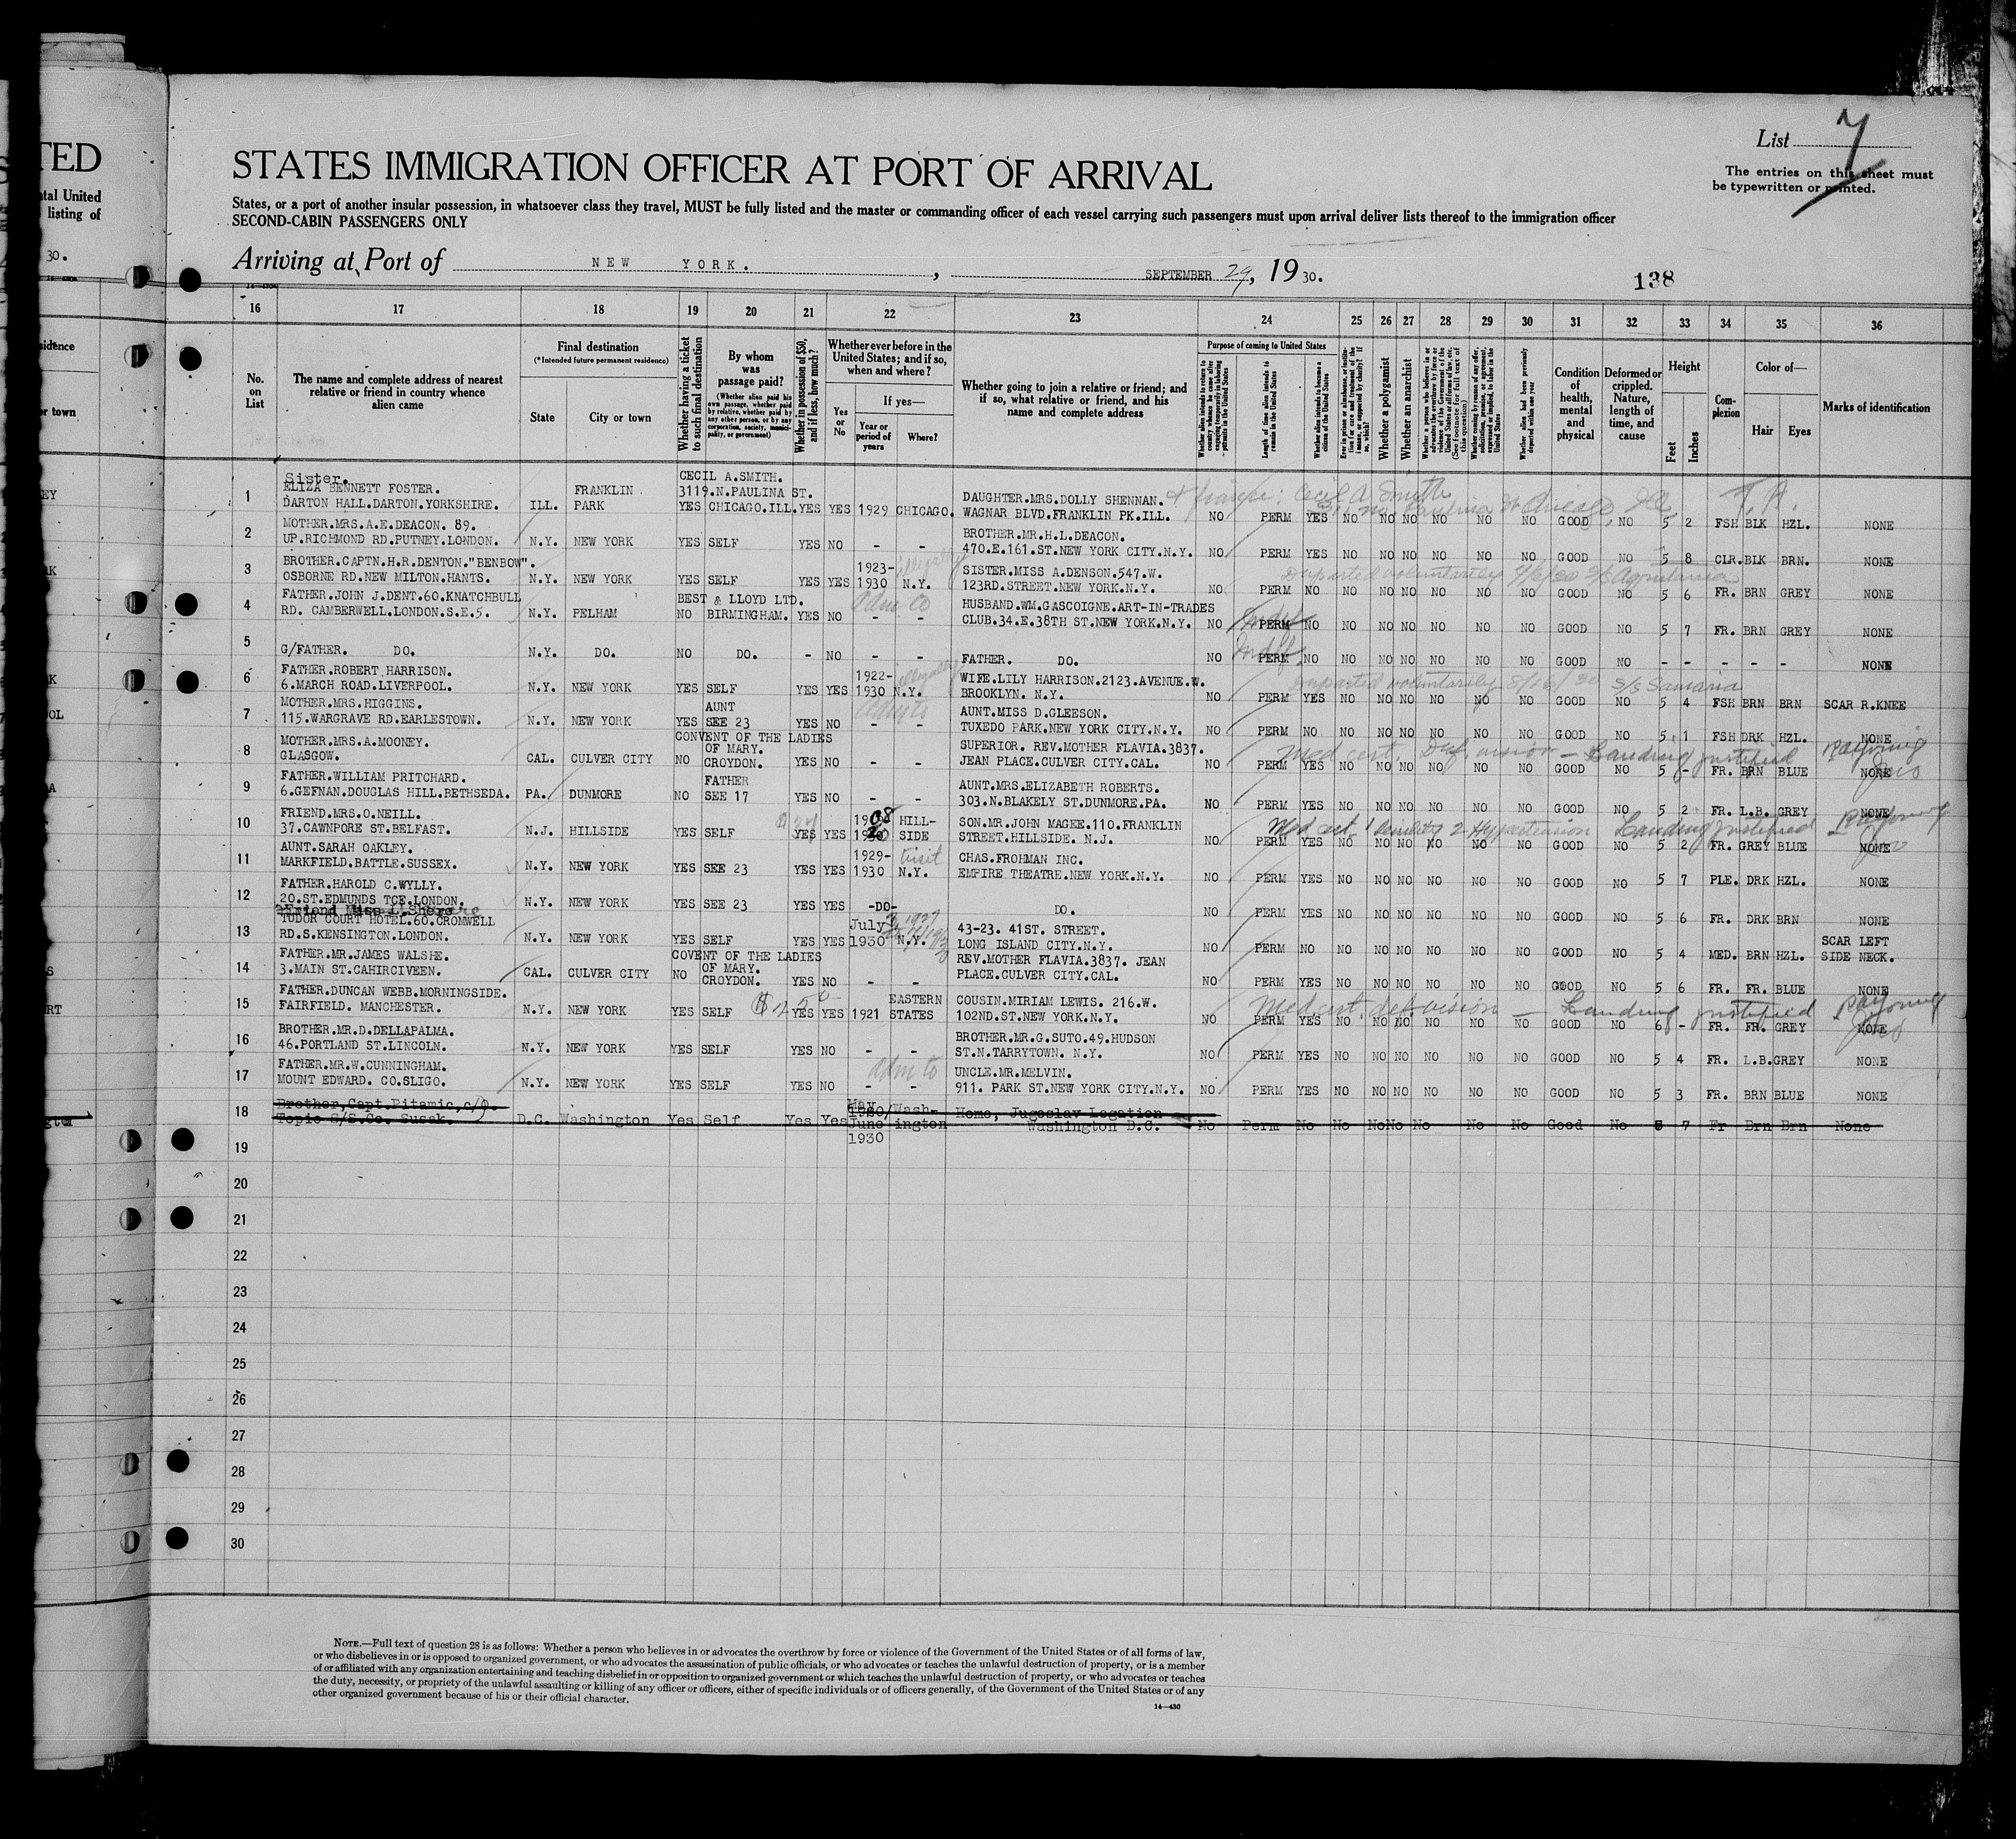 TED
ntal United
listing of
30.
List 7
The entries on this sheet must
be typewritten or printed.
STATES IMMIGRATION OFFICER AT PORT OF ARRIVAL
States, or a port of another insular possession, in whatsoever class they travel, MUST be fully listed and the master or commanding officer of each vessel carrying such passengers must upon arrival deliver lists thereof to the immigration officer
SECOND-CABIN PASSENGERS ONLY
Arriving at Port of NEW YORK. , SEPTEMBER 29, 1930.
138
16 17 18 19 20 21 22 23 24 25 26 27 28 29 30 31 32 33 34 35 36
No. on List
The name and complete address of nearest relative or friend in country whence alien came
Final destination
(*Intended future permanent residence)
State
City or town
Whether having a ticket to such final destination
By whom was passage paid?
(Whether alien paid his own passage, whether paid by relative, whether paid by any other person, or by any corporation, society, municipality, or government)
Whether in possession of $50, and if less, how much?
Whether ever before in the United States; and if so, when and where?
Yes or No
If yes—
Year or period of years
Where?
Whether going to join a relative or friend; and if so, what relative or friend, and his name and complete address
Purpose of coming to United States
Length of time alien intends to remain in the United States
Whether alien intends to become a citizen of the United States
Whether a polygamist
Whether an anarchist
Condition of health, mental and physical
Deformed or crippled. Nature, length of time, and cause
Height
Feet
Inches
Complexion
Color of—
Hair
Eyes
Marks of identification
1 Sister. ELIZA BENNETT FOSTER. DARTON HALL.DARTON.YORKSHIRE. ILL. FRANKLIN PARK YES CECIL A.SMITH. 3119.N.PAULINA ST. CHICAGO.ILL. YES YES 1929 CHICAGO. DAUGHTER.MRS.DOLLY SHENNAN. WAGNAR BLVD.FRANKLIN PK.ILL. NO PERM YES NO NO NO NO NO NO GOOD NO 5 2 FSH BLK HZL. NONE
Cecil A Smith
T.A.
2 MOTHER.MRS.A.E.DEACON. 89. UP.RICHMOND RD.PUTNEY.LONDON. N.Y. NEW YORK YES SELF YES NO - - BROTHER.MR.H.L.DEACON. 470.E.161.ST.NEW YORK CITY.N.Y. NO PERM YES NO NO NO NO NO NO GOOD NO 5 8 CLR. BLK BRN. NONE
3 BROTHER.CAPTN.H.R.DENTON."BENBOW". OSBORNE RD.NEW MILTON.HANTS. N.Y. NEW YORK YES SELF YES YES 1923-1930 N.Y. illegally SISTER.MISS A.DENSON.547.W. 123RD.STREET.NEW YORK.N.Y. NO PERM NO NO NO NO NO NO NO GOOD NO 5 6 FR. BRN GREY NONE
Departed voluntarily S/S Aquitania
4 FATHER.JOHN J.DENT.60.KNATCHBULL RD. CAMBERWELL.LONDON.S.E.5. N.Y. PELHAM NO BEST & LLOYD LTD. BIRMINGHAM. YES NO - - HUSBAND.WM.GASCOIGNE.ART-IN-TRADES CLUB.34.E.38TH ST.NEW YORK.N.Y. NO PERM NO NO NO NO NO NO NO GOOD NO 5 7 FR. BRN GREY NONE
5 G/FATHER. DO. N.Y. DO. NO DO. - NO - - FATHER. DO. NO PERM NO NO NO NO NO NO NO GOOD NO - - - - - NONE
6 FATHER.ROBERT HARRISON. 6.MARCH ROAD.LIVERPOOL. N.Y. NEW YORK YES SELF YES YES 1922-1930 N.Y. illegally WIFE.LILY HARRISON.2123.AVENUE.W. BROOKLYN. N.Y. NO PERM YES NO NO NO NO NO NO GOOD NO 5 4 FSH BRN BRN SCAR R.KNEE
Departed voluntarily S/S Samaria
7 MOTHER.MRS.HIGGINS. 115.WARGRAVE RD.EARLESTOWN. N.Y. NEW YORK YES AUNT SEE 23 YES NO - - AUNT.MISS D.GLEESON. TUXEDO PARK.NEW YORK CITY.N.Y. NO PERM NO NO NO NO NO NO NO GOOD NO 5 1 FSH DRK HZL. NONE
8 MOTHER.MRS.A.MOONEY. GLASGOW. CAL. CULVER CITY NO CONVENT OF THE LADIES OF MARY. CROYDON. YES NO - - SUPERIOR. REV.MOTHER FLAVIA.3837. JEAN PLACE.CULVER CITY.CAL. NO PERM YES NO NO NO NO NO NO GOOD NO 5 - FR. BRN BLUE NONE
Med cert. Def. vision — Landing justified
9 FATHER.WILLIAM PRITCHARD. 6.GEFNAN.DOUGLAS HILL.BETHSEDA. PA. DUNMORE NO FATHER SEE 17 YES NO - - AUNT.MRS.ELIZABETH ROBERTS. 303.N.BLAKELY ST.DUNMORE.PA. NO PERM YES NO NO NO NO NO NO GOOD NO 5 2 FR. L.B. GREY NONE
10 FRIEND.MRS.O.NEILL. 37.CAWNPORE ST.BELFAST. N.J. HILLSIDE YES SELF YES YES HILL-SIDE SON.MR.JOHN MAGEE.110.FRANKLIN STREET.HILLSIDE. N.J. NO PERM YES NO NO NO NO NO NO GOOD NO 5 2 FR. GREY BLUE NONE
Med cert. 1 Senility 2 Hypertension Landing justified
11 AUNT.SARAH OAKLEY. MARKFIELD.BATTLE.SUSSEX. N.Y. NEW YORK YES SEE 23 YES YES 1929-1930 N.Y. visit CHAS.FROHMAN INC. EMPIRE THEATRE.NEW YORK.N.Y. NO PERM YES NO NO NO NO NO NO GOOD NO 5 7 PLE. DRK HZL. NONE
12 FATHER.HAROLD C.WYLLY. 20.ST.EDMUNDS TCE.LONDON. N.Y. NEW YORK YES SEE 23 YES YES -DO- DO. NO PERM YES NO NO NO NO NO NO GOOD NO 5 6 FR. DRK BRN NONE
13 TUDOR COURT HOTEL.60.CROMWELL RD.S.KENSINGTON.LONDON. N.Y. NEW YORK YES SELF YES YES July 1930 N.Y. 43-23. 41ST. STREET. LONG ISLAND CITY.N.Y. NO PERM NO NO NO NO NO NO NO GOOD NO 5 4 MED. BRN HZL. SCAR LEFT SIDE NECK.
14 FATHER.MR.JAMES WALSHE. 3.MAIN ST.CAHIRCIVEEN. CAL. CULVER CITY NO COVENT OF THE LADIES OF MARY. CROYDON. YES NO - - REV.MOTHER FLAVIA.3837. JEAN PLACE.CULVER CITY.CAL. NO PERM YES NO NO NO NO NO NO GOOD NO 5 6 FR. FR. BLUE NONE
15 FATHER.DUNCAN WEBB.MORNINGSIDE. FAIRFIELD. MANCHESTER. N.Y. NEW YORK YES SELF YES YES 1921 EASTERN STATES COUSIN.MIRIAM LEWIS. 216.W. 102ND.ST.NEW YORK.N.Y. NO PERM YES NO NO NO NO NO NO GOOD NO 6 - FR. FR. GREY NONE
Med cert. def vision — Landing justified
16 BROTHER.MR.D.DELLAPALMA. 46.PORTLAND ST.LINCOLN. N.Y. NEW YORK YES SELF YES NO - - BROTHER.MR.G.SUTO.49.HUDSON ST.N.TARRYTOWN. N.Y. NO PERM YES NO NO NO NO NO NO GOOD NO 5 4 FR. L.B. GREY NONE
17 FATHER.MR.W.CUNNINGHAM. MOUNT EDWARD. CO.SLIGO. N.Y. NEW YORK YES SELF YES NO - - UNCLE.MR.MELVIN. 911. PARK ST.NEW YORK CITY.N.Y. NO PERM YES NO NO NO NO NO NO GOOD NO 5 3 FR. BRN BLUE NONE
18 Brother,Capt.Pitamic,c/o. Topic S/S.Co. Susak. D.C. Washington Yes Self Yes Yes May 1930/ June 1930 Wash-ington Home, Jugoslav Legation Washington D.C. No Perm No No No No No No No Good No 5 7 Fr Brn Brn None
19
20
21
22
23
24
25
26
27
28
29
30
NOTE.—Full text of question 28 is as follows: Whether a person who believes in or advocates the overthrow by force or violence of the Government of the United States or of all forms of law,
or who disbelieves in or is opposed to organized government, or who advocates the assassination of public officials, or who advocates or teaches the unlawful destruction of property, or is a member
of or affiliated with any organization entertaining and teaching disbelief in or opposition to organized government or which teaches the unlawful destruction of property, or who advocates or teaches
the duty, necessity, or propriety of the unlawful assaulting or killing of any officer or officers, either of specific individuals or of officers generally, of the Government of the United States or of any
other organized government because of his or their official character.
14—430